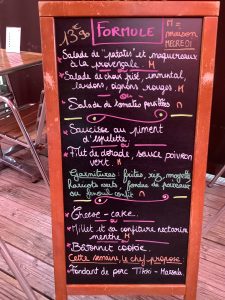 13€90 Formule M = maison
MECREDI
* Salade de "patates" et maquereaux
à la provençale. M
* Salade de chou frisé, emmental,
lardons, oignons rouges. M
ou
* Salade de tomates persillées M
* Saucisse au piment
d'espelette M
ou
* Filet de dorade, sauce poivron
vert. M
Garnitures: frites, riz, mogettes
Haricots verts, fondue de poireaux
ou fenouil confit M
* Cheese-cake.
ou
* Millet et sa confiture nectarine
menthe M
* Baronnut cookie.
Cette semaine, le chef propose
* Fondant de porc Tikki-Massala